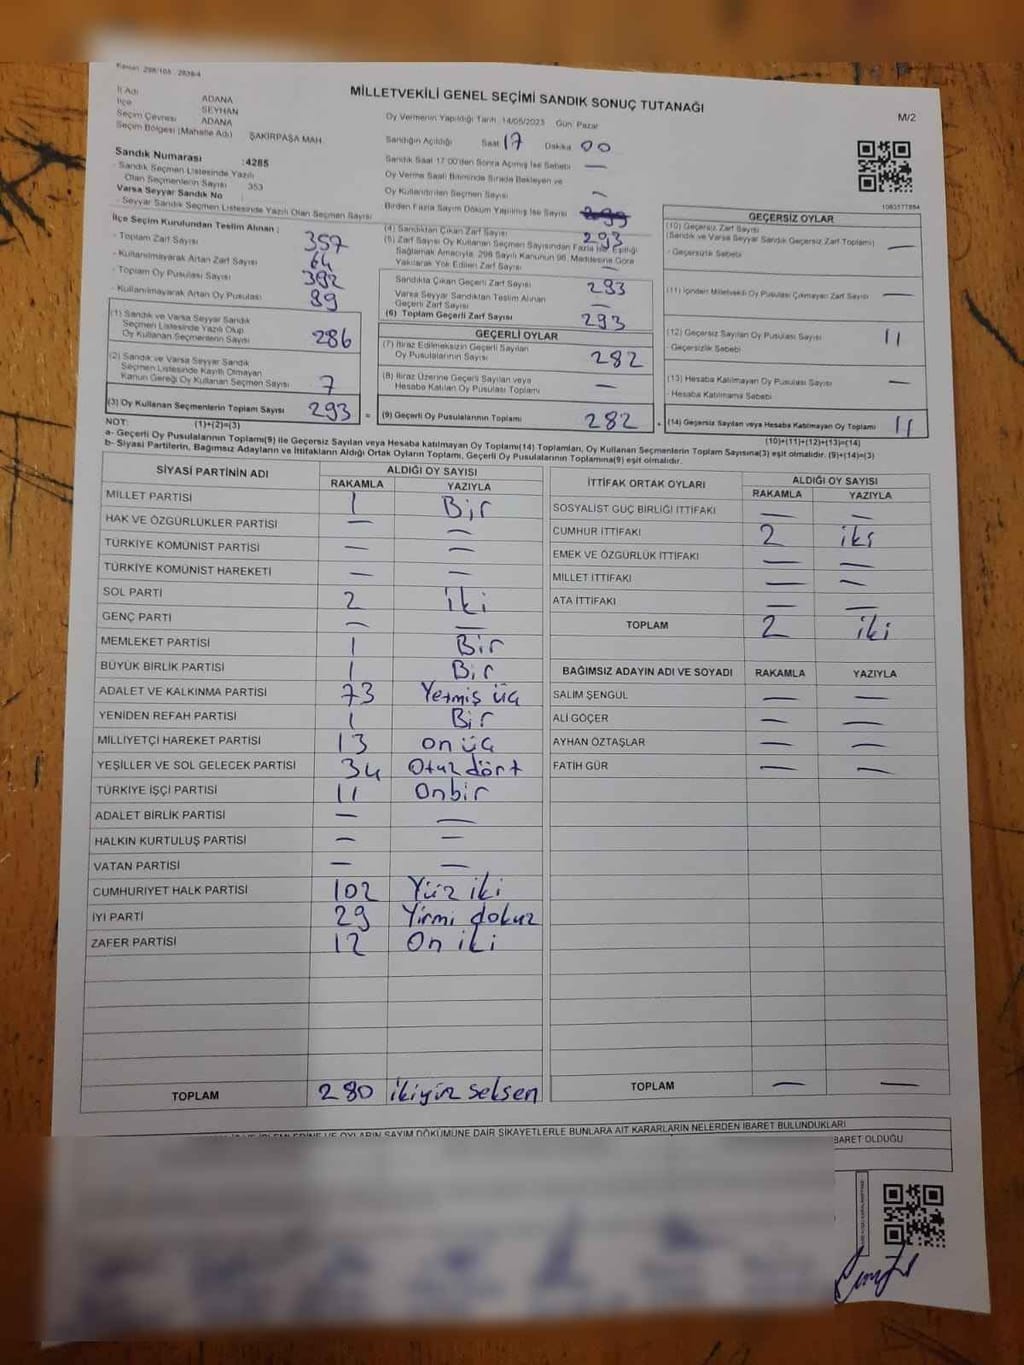 Kanun: 298/105 - 2839/4
MİLLETVEKİLİ GENEL SEÇİMİ SANDIK SONUÇ TUTANAĞI
M/2
İl Adı ADANA
İlçe SEYHAN
Seçim Çevresi ADANA
Seçim Bölgesi (Mahalle Adı) ŞAKİRPAŞA MAH.
Oy Vermenin Yapıldığı Tarih :14/05/2023 Gün: Pazar
Sandığın Açıldığı Saat 17 Dakika 00
Sandık Saat 17:00'den Sonra Açılmış İse Sebebi —
Oy Verme Saati Bitiminde Sırada Bekleyen ve
Oy Kullandırılan Seçmen Sayısı —
Birden Fazla Sayım Döküm Yapılmış İse Sayısı
Sandık Numarası :4285
- Sandık Seçmen Listesinde Yazılı
Olan Seçmenlerin Sayısı 353
Varsa Seyyar Sandık No
- Seyyar Sandık Seçmen Listesinde Yazılı Olan Seçmen Sayısı
İlçe Seçim Kurulundan Teslim Alınan :
- Toplam Zarf Sayısı 357
- Kullanılmayarak Artan Zarf Sayısı 64
- Toplam Oy Pusulası Sayısı 382
- Kullanılmayarak Artan Oy Pusulası 89
(1) Sandık ve Varsa Seyyar Sandık
Seçmen Listesinde Yazılı Olup
Oy Kullanan Seçmenlerin Sayısı 286
(2) Sandık ve Varsa Seyyar Sandık
Seçmen Listesinde Kayıtlı Olmayan
Kanun Gereği Oy Kullanan Seçmen Sayısı 7
(3) Oy Kullanan Seçmenlerin Toplam Sayısı 293
(1)+(2)=(3)
(4) Sandıktan Çıkan Zarf Sayısı 293
(5) Zarf Sayısı Oy Kullanan Seçmen Sayısından Fazla İse, Eşitliği
Sağlamak Amacıyla, 298 Sayılı Kanunun 98. Maddesine Göre
Yakılarak Yok Edilen Zarf Sayısı —
Sandıkta Çıkan Geçerli Zarf Sayısı 293
Varsa Seyyar Sandıktan Teslim Alınan
Geçerli Zarf Sayısı —
(6) Toplam Geçerli Zarf Sayısı 293
GEÇERLİ OYLAR
(7) İtiraz Edilmeksizin Geçerli Sayılan
Oy Pusulalarının Sayısı 282
(8) İtiraz Üzerine Geçerli Sayılan veya
Hesaba Katılan Oy Pusulası Toplamı —
= (9) Geçerli Oy Pusulalarının Toplamı 282
1080577884
GEÇERSİZ OYLAR
(10) Geçersiz Zarf Sayısı
(Sandık ve Varsa Seyyar Sandık Geçersiz Zarf Toplamı) —
- Geçersizlik Sebebi
(11) İçinden Milletvekili Oy Pusulası Çıkmayan Zarf Sayısı —
(12) Geçersiz Sayılan Oy Pusulası Sayısı 11
- Geçersizlik Sebebi
(13) Hesaba Katılmayan Oy Pusulası Sayısı —
- Hesaba Katılmama Sebebi
+ (14) Geçersiz Sayılan veya Hesaba Katılmayan Oy Toplamı 11
(10)+(11)+(12)+(13)=(14)
NOT:
a- Geçerli Oy Pusulalarının Toplamı(9) ile Geçersiz Sayılan veya Hesaba katılmayan Oy Toplamı(14) Toplamları, Oy Kullanan Seçmenlerin Toplam Sayısına(3) eşit olmalıdır. (9)+(14)=(3)
b- Siyasi Partilerin, Bağımsız Adayların ve İttifakların Aldığı Ortak Oyların Toplamı, Geçerli Oy Pusulalarının Toplamına(9) eşit olmalıdır.
SİYASİ PARTİNİN ADI ALDIĞI OY SAYISI
RAKAMLA YAZIYLA
MİLLET PARTİSİ 1 Bir
HAK VE ÖZGÜRLÜKLER PARTİSİ — —
TÜRKİYE KOMÜNİST PARTİSİ — —
TÜRKİYE KOMÜNİST HAREKETİ — —
SOL PARTİ 2 iki
GENÇ PARTİ — —
MEMLEKET PARTİSİ 1 Bir
BÜYÜK BİRLİK PARTİSİ 1 Bir
ADALET VE KALKINMA PARTİSİ 73 Yetmiş üç
YENİDEN REFAH PARTİSİ 1 Bir
MİLLİYETÇİ HAREKET PARTİSİ 13 on üç
YEŞİLLER VE SOL GELECEK PARTİSİ 34 Otuz dört
TÜRKİYE İŞÇİ PARTİSİ 11 Onbir
ADALET BİRLİK PARTİSİ — —
HALKIN KURTULUŞ PARTİSİ — —
VATAN PARTİSİ — —
CUMHURİYET HALK PARTİSİ 102 Yüz iki
İYİ PARTİ 29 Yirmi dokuz
ZAFER PARTİSİ 12 On iki
TOPLAM 280 ikiyüz seksen
İTTİFAK ORTAK OYLARI ALDIĞI OY SAYISI
RAKAMLA YAZIYLA
SOSYALİST GÜÇ BİRLİĞİ İTTİFAKI — —
CUMHUR İTTİFAKI 2 iki
EMEK VE ÖZGÜRLÜK İTTİFAKI — —
MİLLET İTTİFAKI — —
ATA İTTİFAKI — —
TOPLAM 2 iki
BAĞIMSIZ ADAYIN ADI VE SOYADI RAKAMLA YAZIYLA
SALİM ŞENGÜL — —
ALİ GÖÇER — —
AYHAN ÖZTAŞLAR — —
FATİH GÜR — —
TOPLAM — —
OYLARIN SAYIM DÖKÜMÜNE DAİR ŞİKAYETLERLE BUNLARA AİT KARARLARIN NELERDEN İBARET BULUNDUKLARI
İBARET OLDUĞU